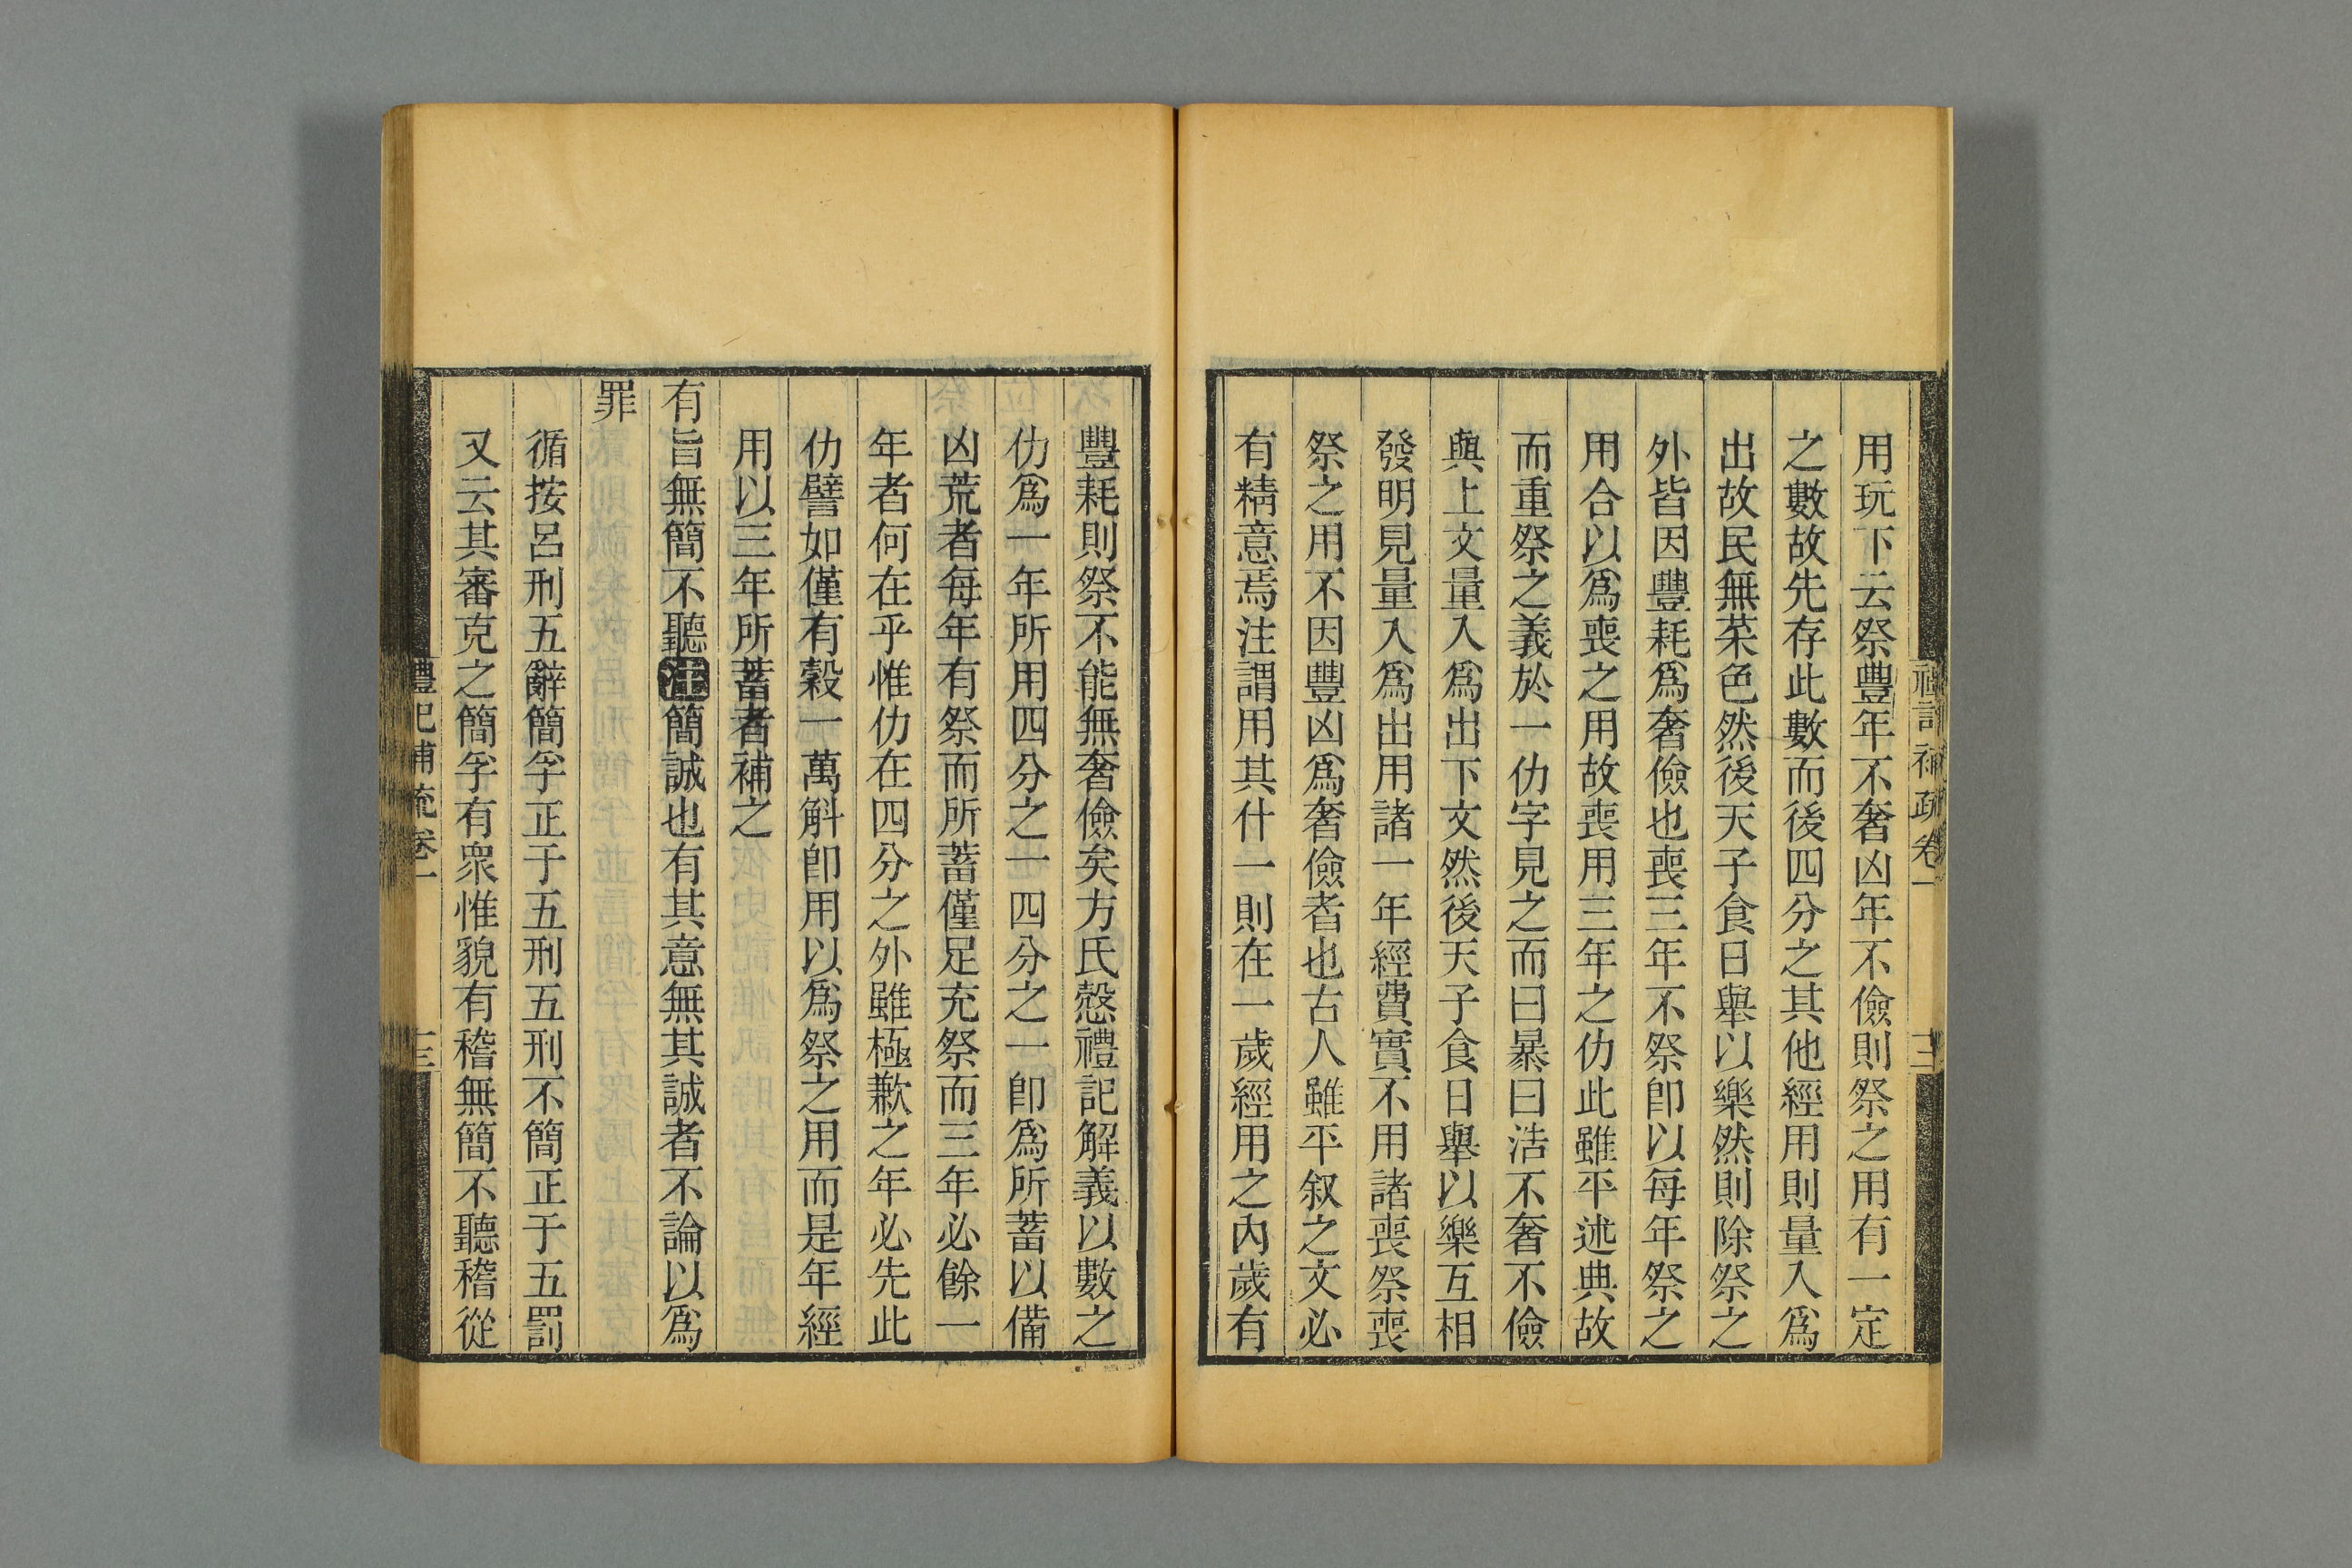 禮記補疏卷一 十二
用玩下云祭豐年不奢凶年不儉則祭之用有一定
之數故先存此數而後四分之其他經用則量入爲
出故民無菜色然後天子食日舉以樂然則除祭之
外皆因豐耗爲奢儉也喪三年不祭卽以每年祭之
用合以爲喪之用故喪用三年之仂此雖平述典故
而重祭之義於一仂字見之而曰暴曰浩不奢不儉
與上文量入爲出下文然後天子食日舉以樂互相
發明見量入爲出用諸一年經費實不用諸喪祭喪
祭之用不因豐凶爲奢儉者也古人雖平叙之文必
有精意焉注謂用其什一則在一歲經用之內歲有
豐耗則祭不能無奢儉矣方氏慤禮記解義以數之
仂爲一年所用四分之一四分之一卽爲所蓄以備
凶荒者每年有祭而所蓄僅足充祭而三年必餘一
年者何在乎惟仂在四分之外雖極歉之年必先此
仂譬如僅有穀一萬斛卽用以爲祭之用而是年經
用以三年所蓄者補之
有旨無簡不聽注簡誠也有其意無其誠者不論以爲
罪
循按呂刑五辭簡孚正于五刑五刑不簡正于五罰
又云其審克之簡孚有衆惟貌有稽無簡不聽稽從
禮記補疏卷一 十三